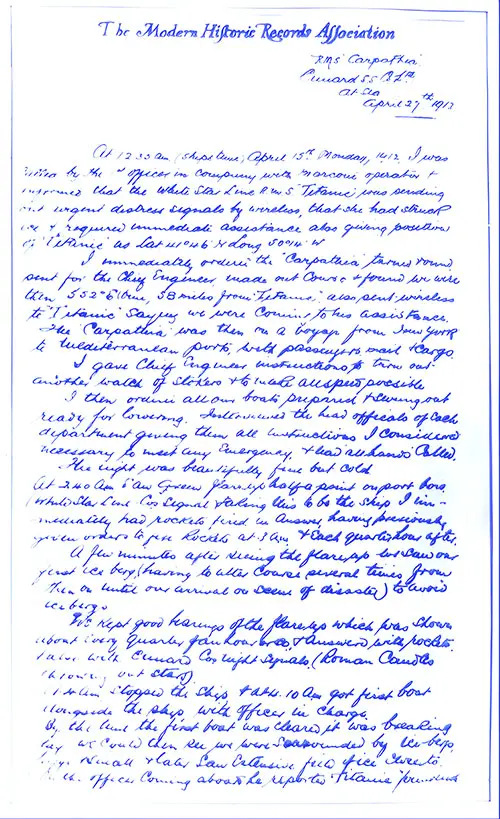 The Modern Historic Records Association
RMS "Carpathia"
Cunard SS Co Ltd
At Sea
April 27th 1912
At 12.35 am (Ships time) April 15th Monday, 1912, I was
by the officer in company with Marconi operator &
informed that the White Star Line R M S "Titanic" was sending
out urgent distress signals by wireless, that she had struck
ice & required immediate assistance also giving position
of "Titanic" as Lat 41°46' N Long 50°14' W
I immediately ordered the "Carpathia" turned round
sent for the Chief Engineer, made out Course & found we were
then S 52° E (true) 58 miles from "Titanic," also sent wireless
to "Titanic" saying we were coming to his assistance.
The "Carpathia" was then on a voyage from New York
to Mediterranean ports, with passengers mail & cargo.
I gave Chief Engineer instructions to turn out
another watch of stokers & to make all speed possible
I then ordered all our boats prepared & swung out
ready for lowering. Interviewed the head officials of each
department giving them all instructions I considered
necessary to meet any Emergency, & had all hands called.
The night was beautifully fine but cold
At 2.40 am saw Green flare, half a point on port bow.
(White) Star Line Cos Signal & taking this to be the ship I im-
mediately had rockets fired in answer, having previously
given orders to fire Rockets at 3 am & Each quarter hour after.
A few minutes after seeing the flare, we saw our
first ice berg, (having to alter Course several times from
then on until our arrival on scene of disaster) to avoid
icebergs
We kept good bearings of the flare which was shown
about every quarter of an hour & answered with rockets.
& also with Cunard Cos night signals (Roman Candles
throwing out stars)
4.0 am Stopped the ship & at 4.10 am got first boat
alongside the ship with officer in charge.
By the time the first boat was cleared it was breaking
day we could then see we were surrounded by ice-bergs,
large & small & later saw Extensive field of ice close to.
the officer coming aboard he reported "Titanic" foundered